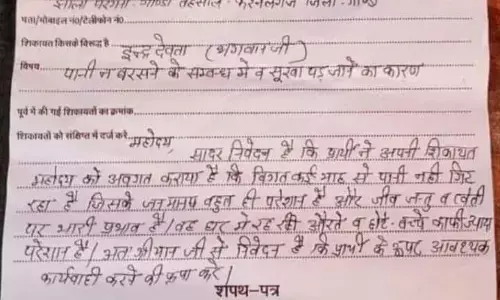 झाला परगना- गोण्डा तहसील- करनैलगंज जिला- गोण्डा
पता/मोबाइल नं0/टेलीफोन नं0
शिकायत किसके विरूद्ध है इन्द्र देवता (भगवान जी)
विषय पानी न बरसने के सम्बन्ध में व सूखा पड़ जाने का कारण
पूर्व में की गई शिकायतों का क्रमांक
शिकायतों को संक्षिप्त में दर्ज करे महोदय,
सादर निवेदन है कि प्रार्थी ने अपनी शिकायत
महोदय को अवगत कराया है कि विगत कई माह से पानी नही गिर
रहा है जिसके जनमानस बहुत ही परेशान है और जीव जन्तु व खेती
पर भारी प्रभाव है / वह घर में रह रही औरते व छोटे बच्चे काफी
परेशान है / अतः श्रीमान जी से निवेदन है कि प्रार्थी के ऊपर आवश्यक
कार्यवाही करने की कृपा करें /
शपथ-पत्र